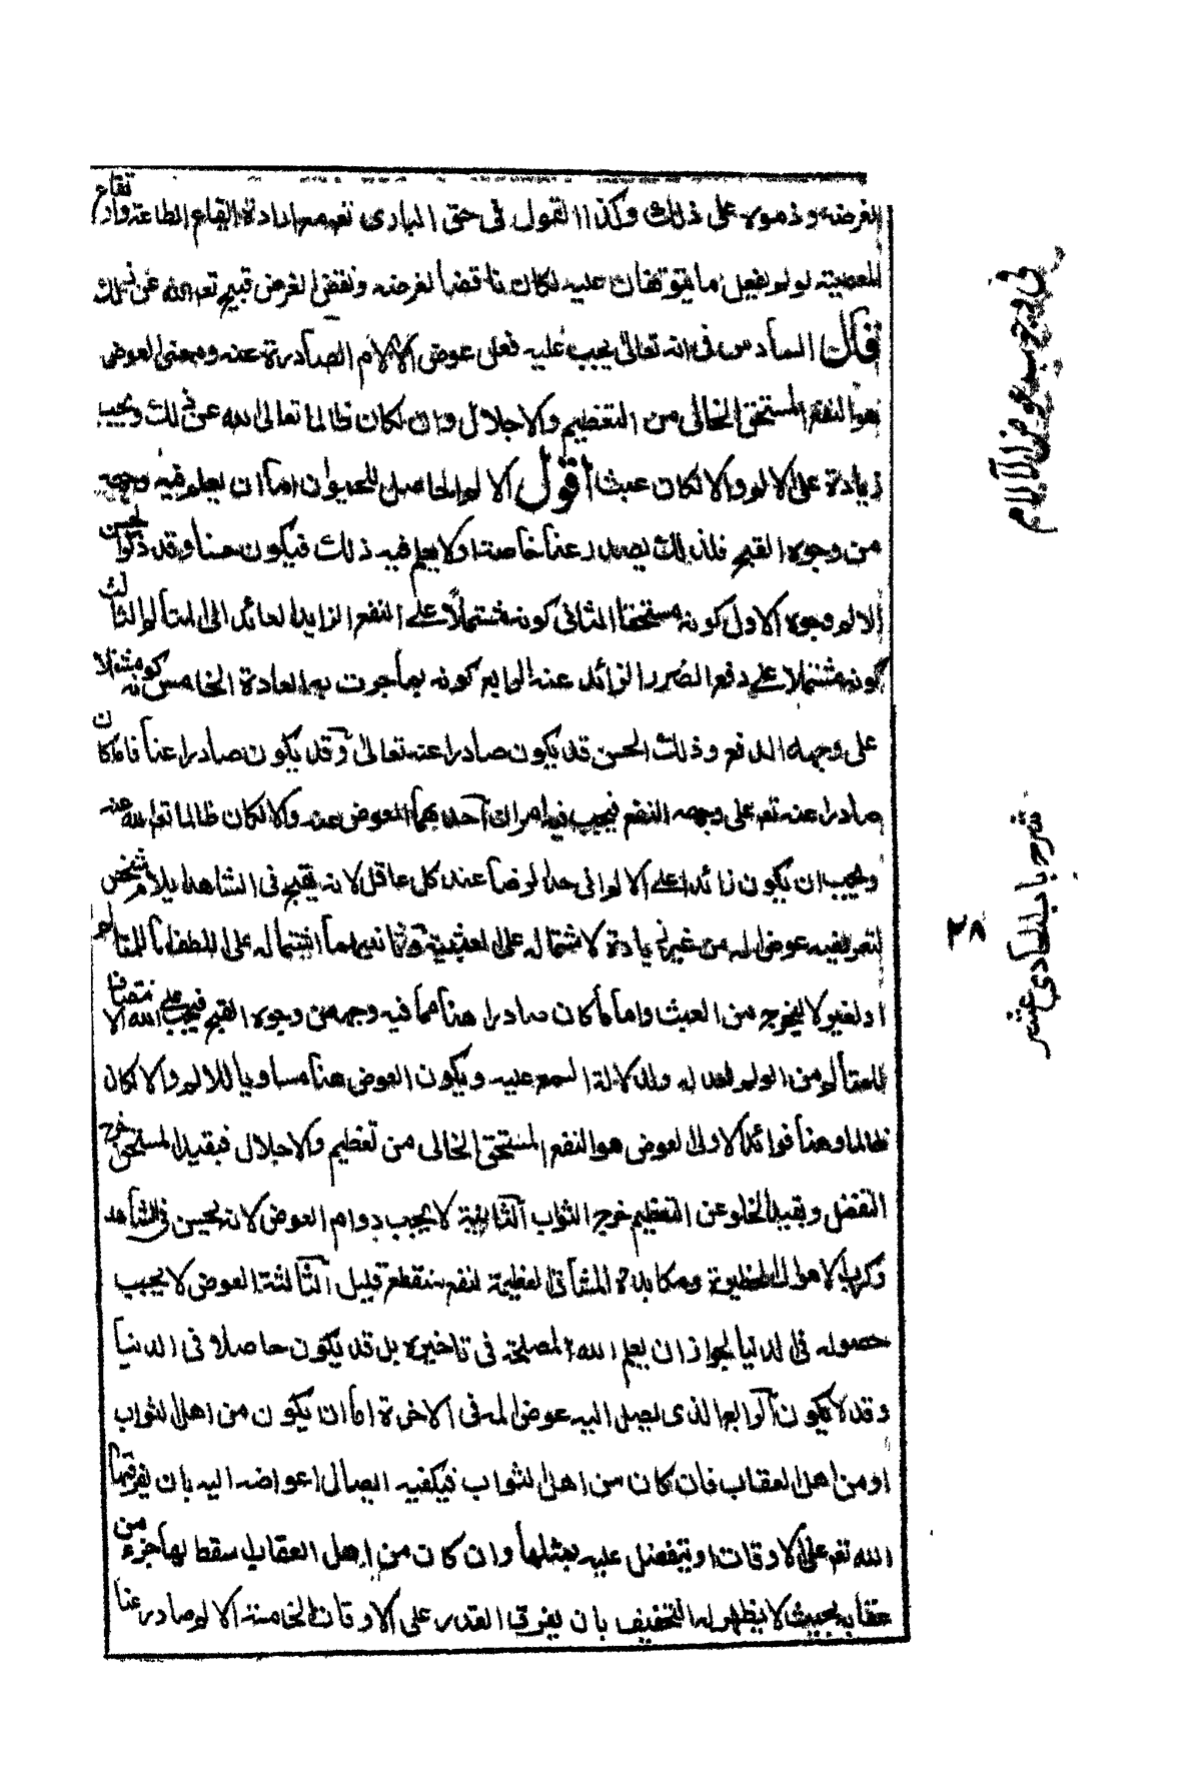 لغرضه وذموه على ذلك وكذا القول فى حق البارى تع مع ارادة ايقاع الطاعة وارتفاع
المعصية لو لم يفعل ما يتوقفان عليه لكان ناقضا لغرضه ونقض الغرض قبيح تع الله عن ذلك
قال السادس فى انه تعالى يجب عليه فعل عوض الالام الصادرة عنه ومعنى العوض
هو النفع المستحق الخالى من التعظيم والاجلال وان لكان ظالما تعالى الله عن ذلك ويجب
زيادة على الالم والا لكان عبثا اقول الالم الحاصل للحيوان اما ان يعلم فيه وجه
من وجوه القبح فذلك يصدر عنا خاصة او لا يعلم فيه ذلك فيكون حسنا وقد ذكروا لحسن
الالم وجوه الاول كونه مستحقا الثانى كونه مشتملا على النفع الزايد العائد الى المتالم الثالث
كونه مشتملا على دفع الضرر الزائد عنه الرابع كونه بما جرت به العادة الخامس كونه مشتملا
على وجه الدفع وذلك الحسن قد يكون صادرا عنه تعالى وقد يكون صادرا عنا فاما كان
صادرا عنه تع على وجه النفع فيجب فيه امران احدهما العوض عنه والا لكان ظالما تع الله عنه
ويجب ان يكون زائدا على الالم الى حد الرضا عند كل عاقل لانه يقبح فى الشاهد ايلام شخص
لتعريضه عوض المه من غير زيادة لاشتماله على العبثية وثانيهما اشتماله على اللطف اما للمتالم
او لغيره ليخرج من العبث واما ما كان صادرا عنا مما فيه وجه من وجوه القبح فيجب على الله الانتصاف
للمتالم من المولم لعدله ولدلالة السمع عليه ويكون العوض هنا مساويا للالم والا لكان
ظالما وهنا فوائد الاولى العوض هو النفع المستحق الخالى من تعظيم والاجلال فبقيد المستحق خرج
التفضل وبقيد الخلو عن التعظيم خرج الثواب الثانية لا يجب دوام العوض لانه يحسن فى الشاهد
ركوب الاهوال الخطيرة ومكابدة المشاق العظيمة لنفع منقطع قليل الثالثة العوض لا يجب
حصوله فى الدنيا لجواز ان يعلم الله المصلحة فى تاخيره بل قد يكون حاصلا فى الدنيا
وقد لا يكون الرابع الذى يصل اليه عوض المه فى الاخرة اما ان يكون من اهل الثواب
او من اهل العقاب فان كان من اهل الثواب فيكفيه ايصال اعواضه اليه بان يفرقها
الله تع على الاوقات او يتفضل عليه بمثلها وان كان من اهل العقاب اسقط بها جزء من
عقابه بحيث لا يظهر له التخفيف بان يفرق القدر على الاوقات الخامسة الالم صادر عنا
فى وجوب عوض الآلام
شرح باب الحادي عشر
٢٨